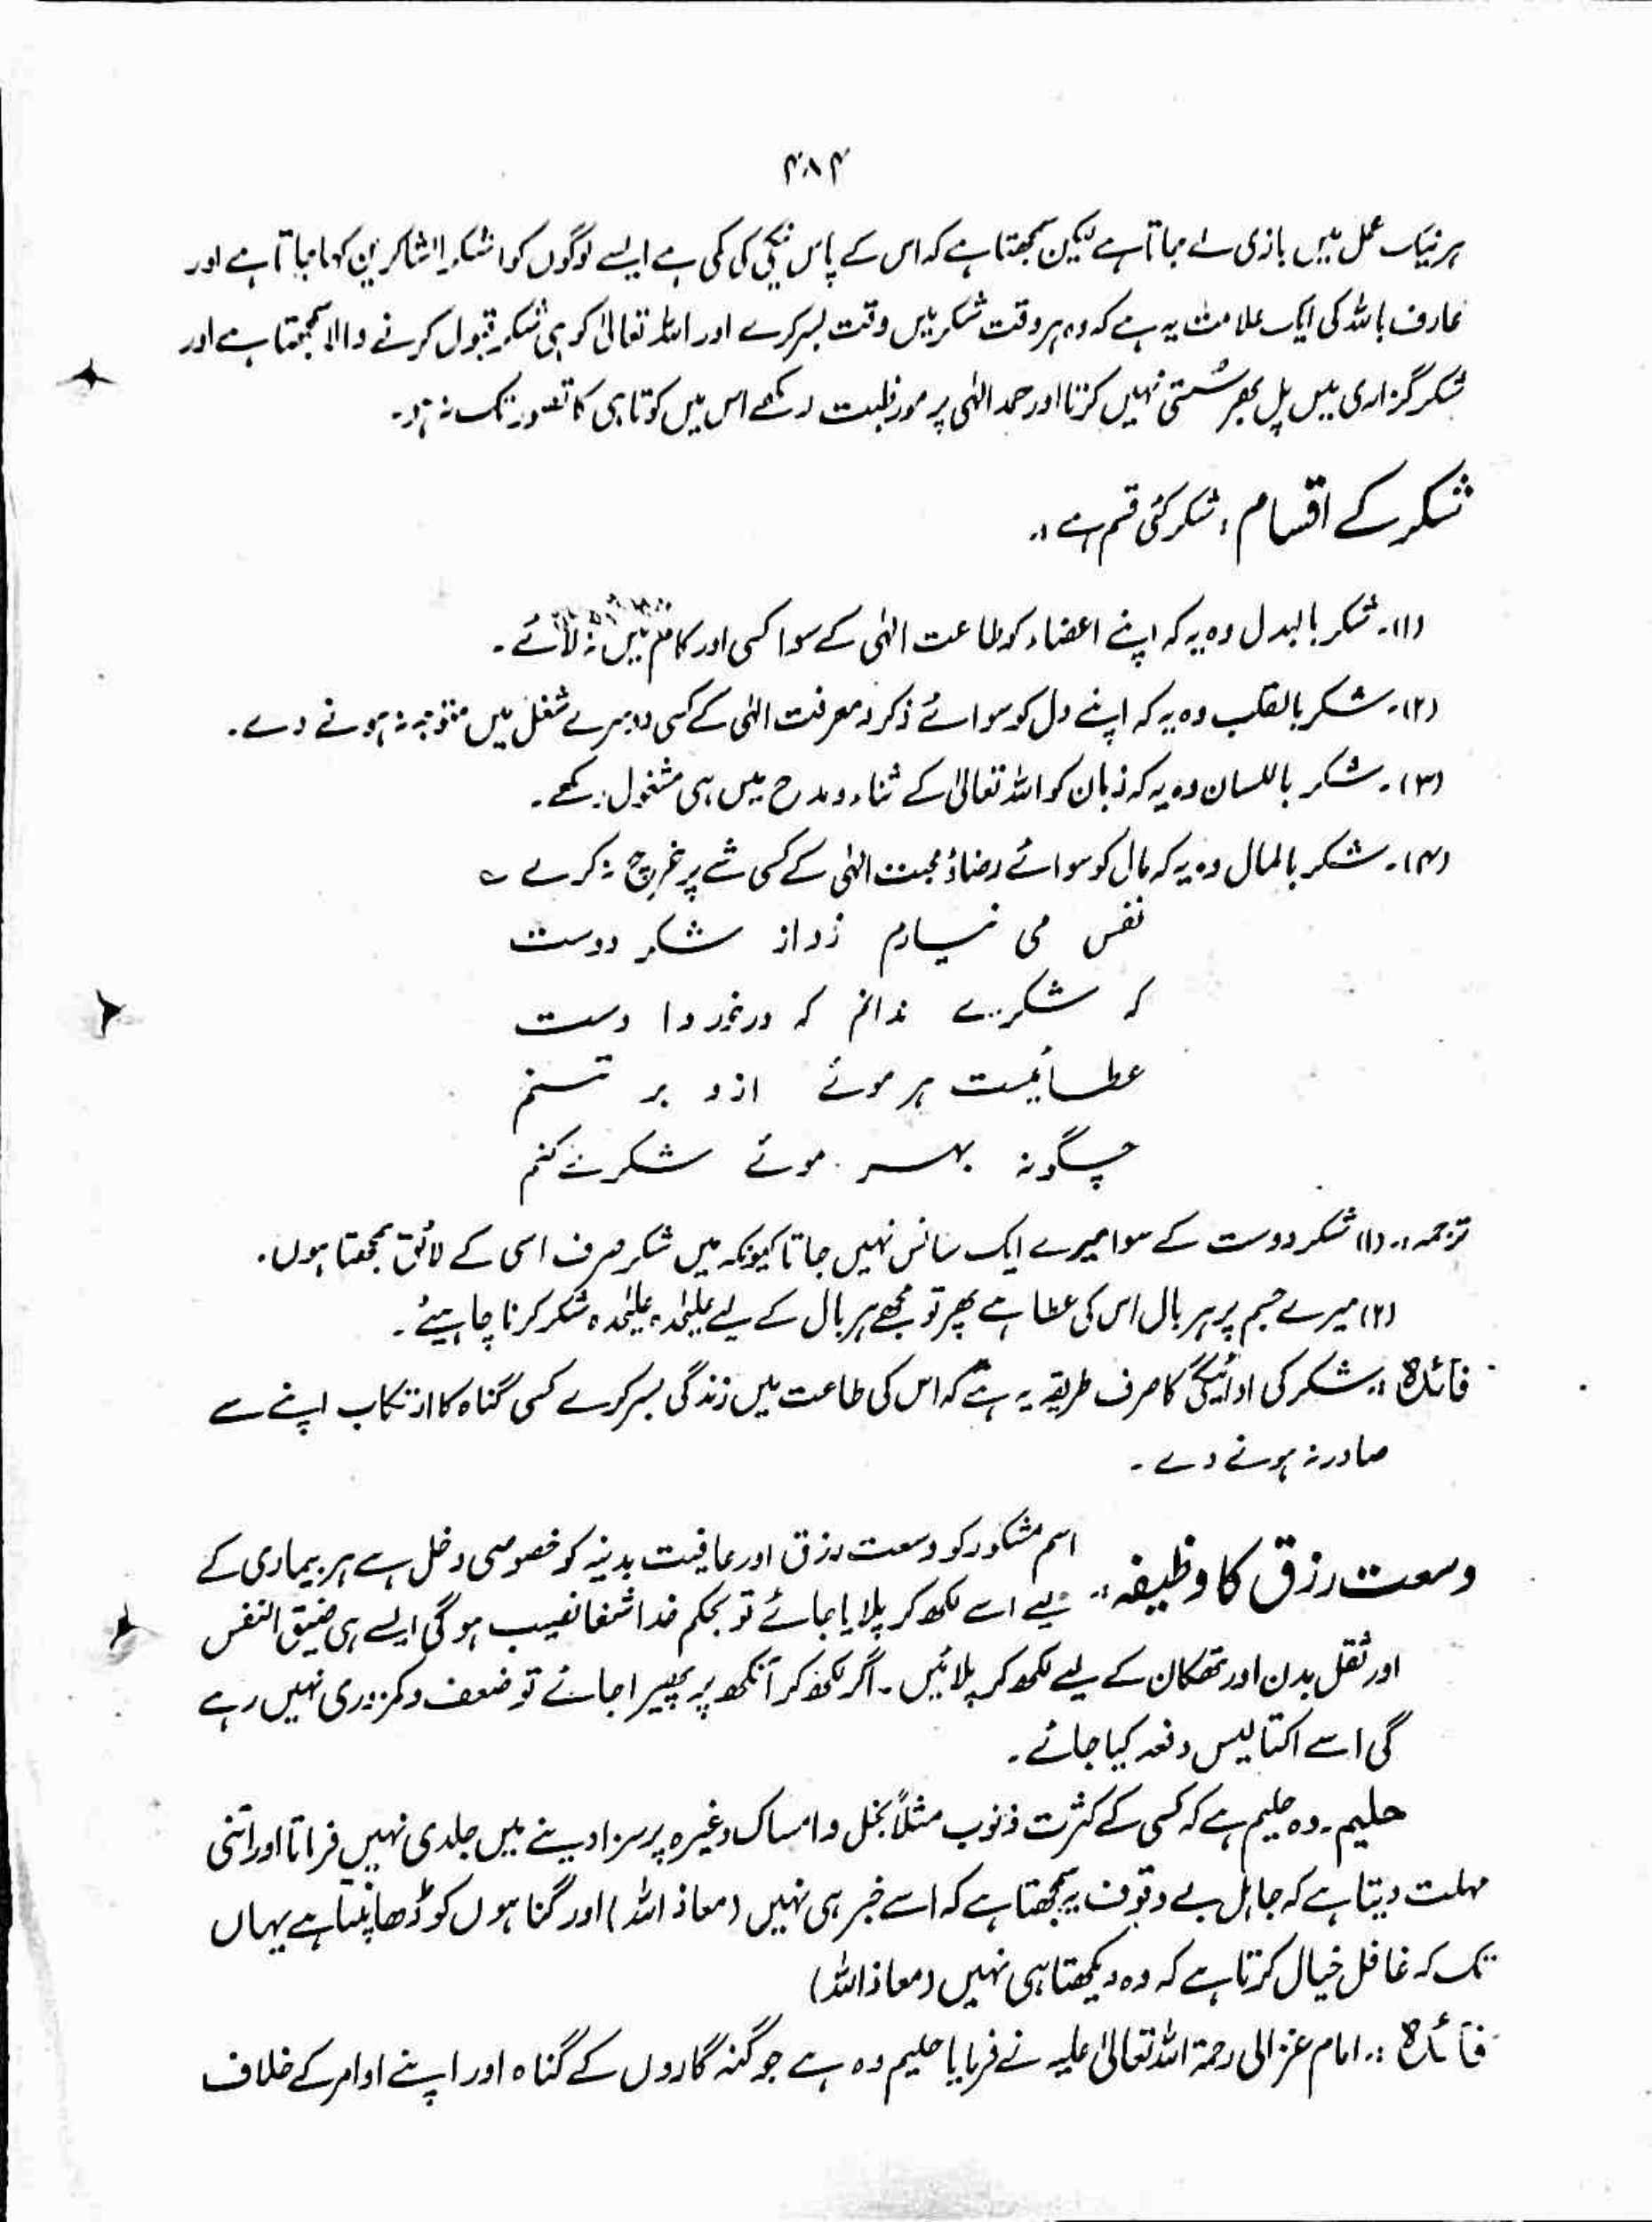 ۴۸۴
ہر نیک عمل میں بازی لے جاتا ہے لیکن سمجھتا ہے کہ اس کے پاس نیکی کی کمی ہے ایسے لوگوں کو اشکر الشاکرین کہا جاتا ہے اور
عارف باللہ کی ایک علامت یہ ہے کہ وہ ہر وقت شکر میں وقت بسر کرے اور اللہ تعالیٰ کو ہی شکر قبول کرنے والا سمجھتا ہے اور
شکر گزاری میں پل بھر سُستی نہیں کرتا اور حمد الٰہی پر موزظبت رکھے اس میں کوتاہی کا تصور تک نہ ہو۔
شکر کے اقسام : شکر کئی قسم ہے :۔
(۱)۔ شکر بالبدل وہ یہ کہ اپنے اعضاء کو طاعت الٰہی کے سوا کسی اور کام میں نہ لائے ۔
(۲)۔ شکر بالقلب وہ یہ کہ اپنے دل کو سوائے ذکر و معرفت الٰہی کے کسی دوسرے شغل میں متوجہ نہ ہونے دے ۔
(۳)۔ شکر باللسان وہ یہ کہ زبان کو اللہ تعالیٰ کے ثناء و مدح میں ہی مشغول رکھے ۔
(۴)۔ شکر بالمال وہ یہ کہ مال کو سوائے رضاؤ محبت الٰہی کے کسی شے پر خرچ نہ کرے ؎
نفس می نیارم زد از شکر دوست
کہ شکرے ندانم کہ درخور د ا وست
عطائیست ہر موئے ازو بر تنم
چگونہ بہر موئے شکرے کنم
ترجمہ :۔ (۱) شکر دوست کے سوا میرے ایک سانس نہیں جاتا کیونکہ میں شکر صرف اسی کے لائق سمجھتا ہوں ۔
(۲) میرے جسم پر ہر بال اس کی عطا ہے پھر تو مجھے ہر بال کے لیے علیٰحدہ علیٰحدہ شکر کرنا چاہیئے ۔
فائدہ :۔ شکر کی ادائیگی کا صرف طریقہ یہ ہے کہ اس کی طاعت میں زندگی بسر کرے کسی گناہ کا ارتکاب اپنے سے
صادر نہ ہونے دے ۔
وسعت رزق کا وظیفہ :۔ اسم شکور کو وسعت رزق اور عافیت بدنیہ کو خصوصی دخل ہے ہر بیماری کے
لیے اسے لکھ کر پلایا جائے تو بحکم خدا شفا نصیب ہو گی ایسے ہی ضیق النفس
اور ثقل بدن اور تھکان کے لیے لکھ کر پلائیں ۔ اگر لکھ کر آنکھ پر پھیرا جائے تو ضعف و کمزوری نہیں رہے
گی اسے اکتالیس دفعہ کیا جائے ۔
حلیم ۔ وہ حلیم ہے کہ کسی کے کثرت ذنوب مثلاً بخل و امساک وغیرہ پر سزا دینے میں جلدی نہیں فرماتا اور اتنی
مہلت دیتا ہے کہ جاہل بے وقوف یہ سمجھتا ہے کہ اسے خبر ہی نہیں (معاذ اللہ) اور گناہوں کو ڈھانپتا ہے یہاں
تک کہ غافل خیال کرتا ہے کہ وہ دیکھتا ہی نہیں (معاذ اللہ)
فائدہ :۔ امام غزالی رحمۃ اللہ تعالیٰ علیہ نے فرمایا حلیم وہ ہے جو گنہ گاروں کے گناہ اور اپنے اوامر کے خلاف